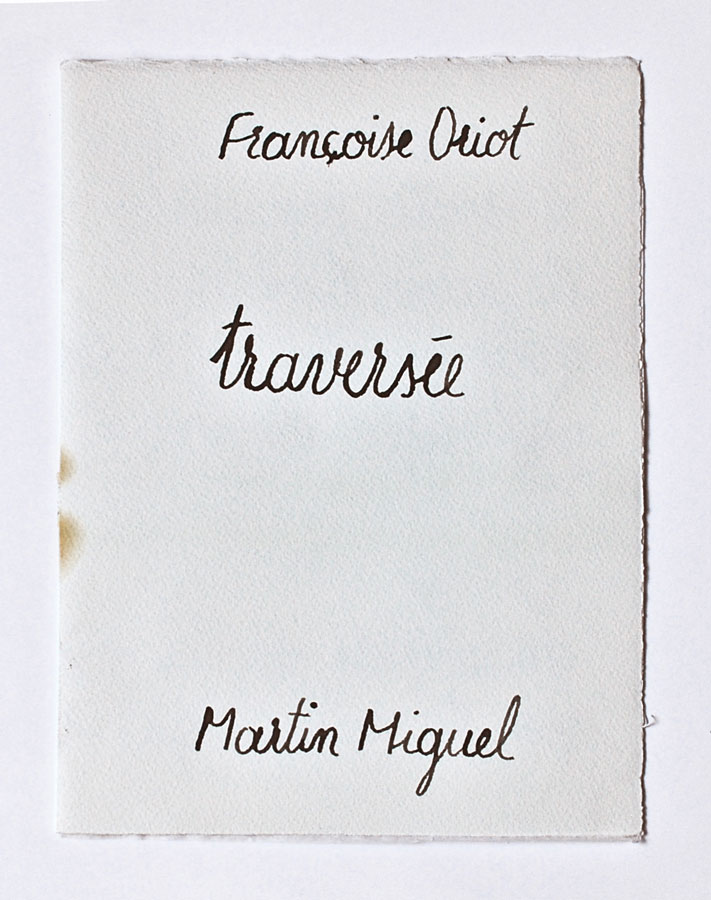 Françoise Oriot
traversée
Martin Miguel